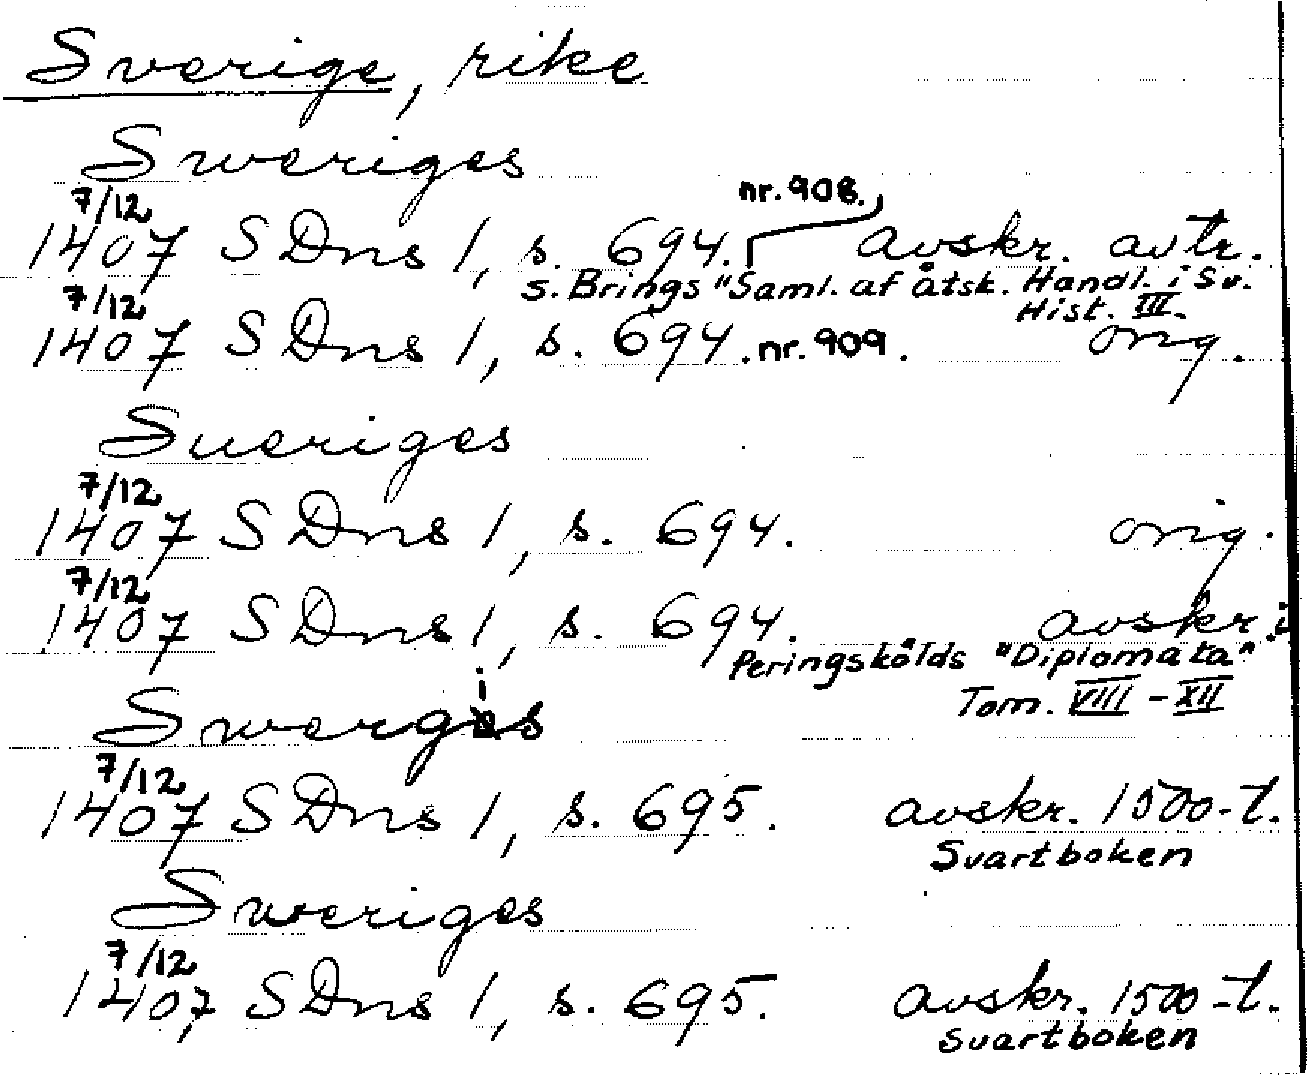 Sverige, rike
Sweriges
7/12 nr. 908.
1407 SDns 1, s. 694. avskr. avtr.
s. Brings "Saml. af åtsk. Handl. i Sv.
7/12 Hist. III.
1407 SDns 1, s. 694. nr. 909. orig.
Sueriges
7/12
1407 SDns 1, s. 694. orig.
7/12
1407 SDns 1, s. 694. avskr. i
Peringskölds "Diplomata"
Tom. VIIII - XII
Swergis
7/12
1407 SDns 1, s. 695. avskr. 1500-t.
Svartboken
Sweriges
7/12
1407 SDns 1, s. 695. avskr. 1500-t.
Svartboken